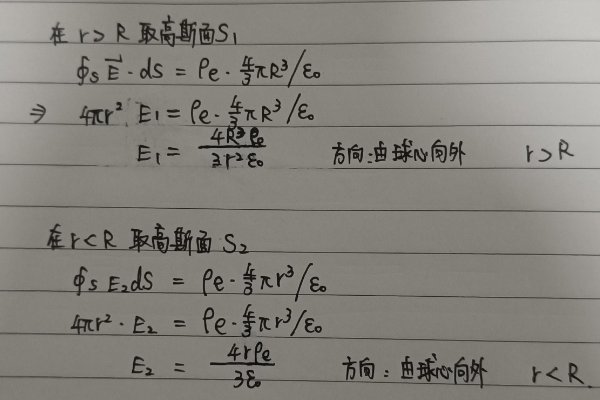 在 r > R 取高斯面S₁
∮s E⃗ · ds = ρe · 4/3 πR³/ε₀
⇒ 4πr² E₁ = ρe · 4/3 πR³/ε₀
E₁ = 4R³ρe / 3r²ε₀ 方向:由球心向外 r > R
在 r < R 取高斯面 S₂
∮s E₂ds = ρe · 4/3 πr³/ε₀
4πr² · E₂ = ρe · 4/3 πr³/ε₀
E₂ = 4rρe / 3ε₀ 方向:由球心向外 r < R.